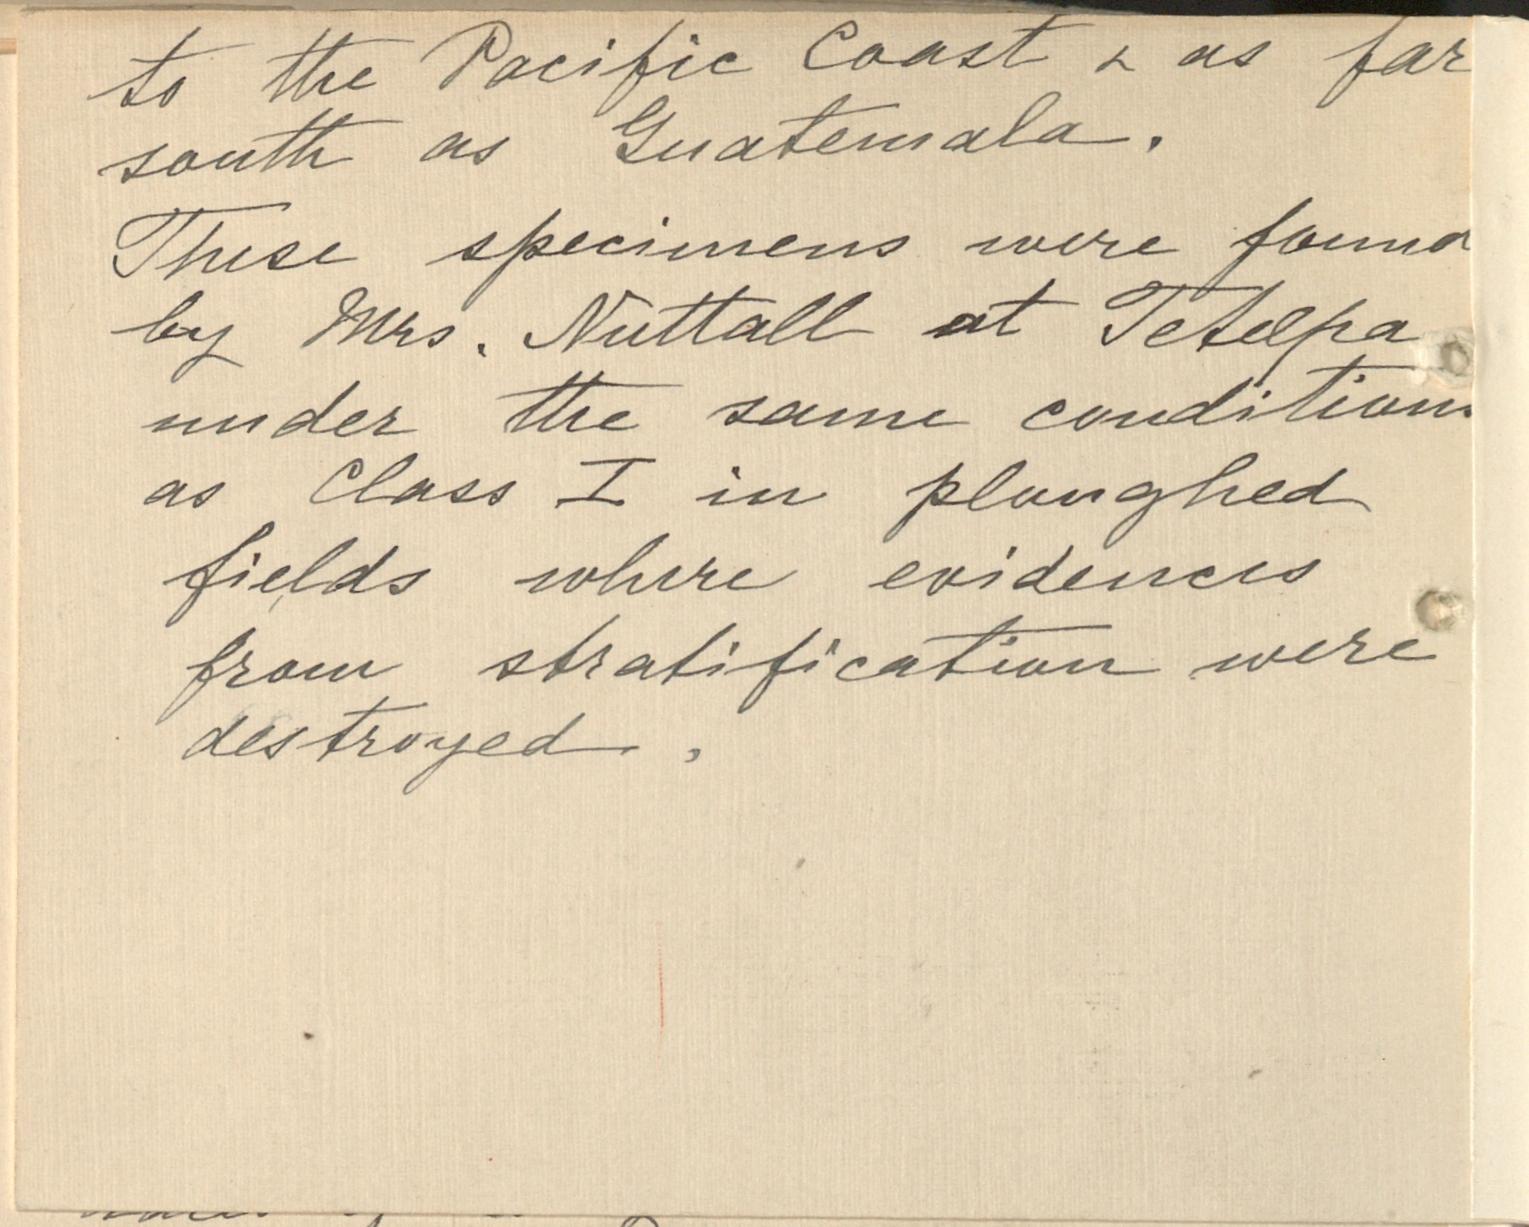 to the Pacific Coast & as far
south as Guatemala.
These specimens were found
by Mrs. Nuttall at Tetelpa
under the same conditions
as Class I in ploughed
fields where evidences
from stratification were
destroyed.